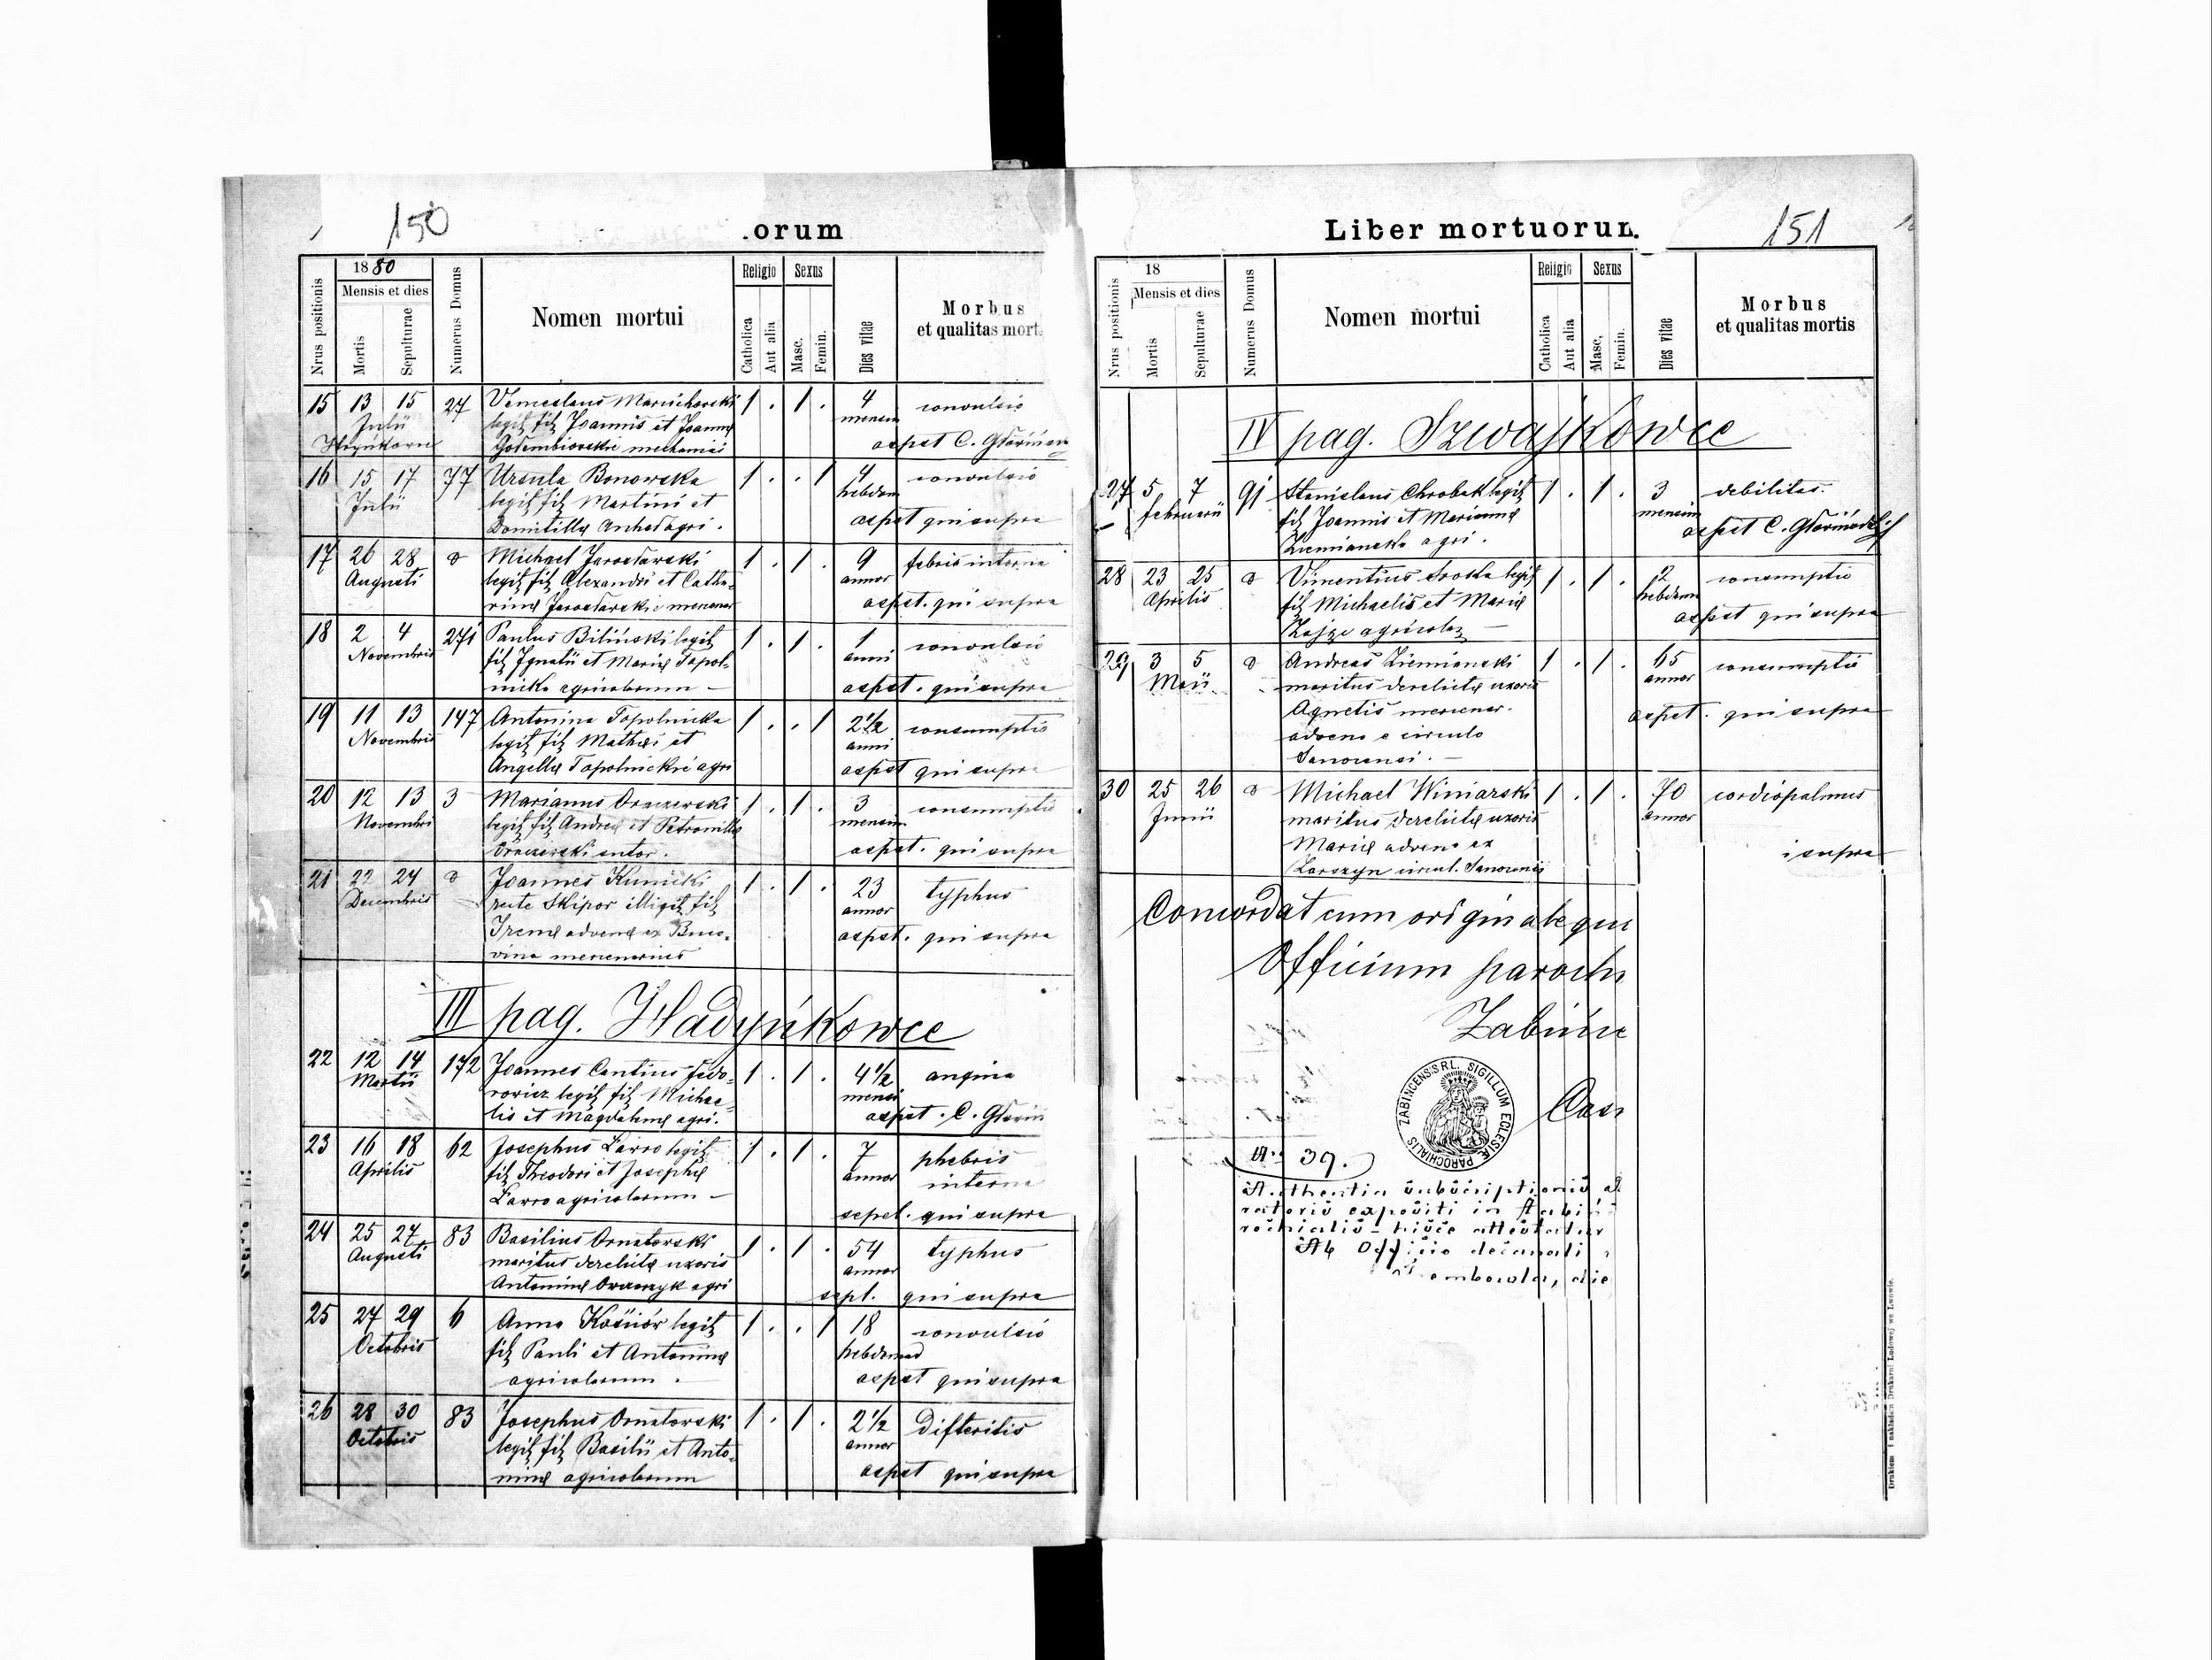 150
.orum
1880
Mensis et dies
Nrus positionis
Mortis
Sepulturae
Numerus Domus
Nomen mortui
Religio
Catholica
Aut alia
Sexus
Masc.
Femin.
Dies vitae
Morbus
et qualitas mort.
15 13 15 27 Venceslaus 1 . 1 . 4 convulsio
Julii legit fil Joannis et Joannae mensium
mechanici aspst C.
16 15 17 77 Ursula Bonowska 1 . . 1 4 convulsio
Julii legit fil Martini et hebdom
Domitillae agri. aspst qui supra
17 26 28 a Michael Jarosławski 1 . 1 . 9 febris interna
Augusti legit fil Alexandri et Catha- annor
rinae Jarosławski mercenar aspst. qui supra
18 2 4 271 Paulus Biliński legit 1 . 1 . 1 convulsio
Novembris fil Ignatii et Mariae Topol- anni
nicka agricolarum – aspst. qui supra
19 11 13 147 Antonina Topolnicka 1 . . 1 2½ consumptio
Novembris legit fil Mathei et anni
Angellae Topolnickie agri aspst qui supra
20 12 13 3 Marianus 1 . 1 . 3 consumptio
Novembri legit fil Andreae et Petronillae mensium
sutor. aspst. qui supra
21 22 24 a Joannes Kunicki 1 . 1 . 23 typhus
Decembris recte Skipor illigit fil annor
Irenae advenae ex Buco- aspst. qui supra
vina mercenarius
III pag. Hadyńkowce
22 12 14 172 Joannes Cantius Fedo- 1 . 1 . 4½ angina
Martii rowicz legit fil Michae- mensi
lis et Magdalenae agri. aspst. C.
23 16 18 62 Josephus Ławro legit 1 . 1 . 7 phebris
Aprilis fil Theodori et Josephae annor interna
Ławro agricolarum – sepel. qui supra
24 25 27 83 Basilius Ornatowski 1 . 1 . 54 typhus
Augusti maritus derelictae uxoris annor
Antoninae agri sepl. qui supra
25 27 29 6 Anna Kośiór legit 1 . . 1 18 convulsio
Octobris fil Pauli et Antoninae hebdomad
agricolarum . aspst qui supra
26 28 30 83 Josephus Ornatowski 1 . 1 . 2½ Difteritis
Octobris legit fil Basilii et Anto- annor
ninae agricolarum aspst qui supra
Liber mortuorum.
151
18
Mensis et dies
Nrus positionis
Mortis
Sepulturae
Numerus Domus
Nomen mortui
Religio
Catholica
Aut alia
Sexus
Masc.
Femin.
Dies vitae
Morbus
et qualitas mortis
IV pag. Szwajkowce
27 5 7 91 Stanislaus Chrobak legit 1 . 1 . 3 debilitas.
februarii fil Joannis et Mariannae mensium
Ziemianska agri. aspst C.
28 23 25 a Vincentius Sroka legit 1 . 1 . 2 consumptio
Aprilis fil Michaelis et Mariae hebdom
Zając agricolar – aspst qui supra
29 3 5 a Andreas Ziemianski 1 . 1 . 65 consumptio
Maii maritus derelictae uxoris annor
Agnetis mercenar. aspst. qui supra
advena e circulo
Sanocensi. –
30 25 26 a Michael Winiarski 1 . 1 . 70 cordiopalmus
Junii maritus derelictae uxoris annor
Mariae advena ex i supra
Zarszyn circul. Sanocensis
Concordat cum originale qu
Officium paroch
Zabińc
SIGILLUM ECLESIÆ PAROCHIALIS ZABINCENSIS R.L.
N. 39.
Authentia subscriptionis
ratoris expositi in
rochialis hisce attestatur
Ab Officio decanali
embowla, die
Drukiem i nakładem Drukarni Ludowej we Lwowie.